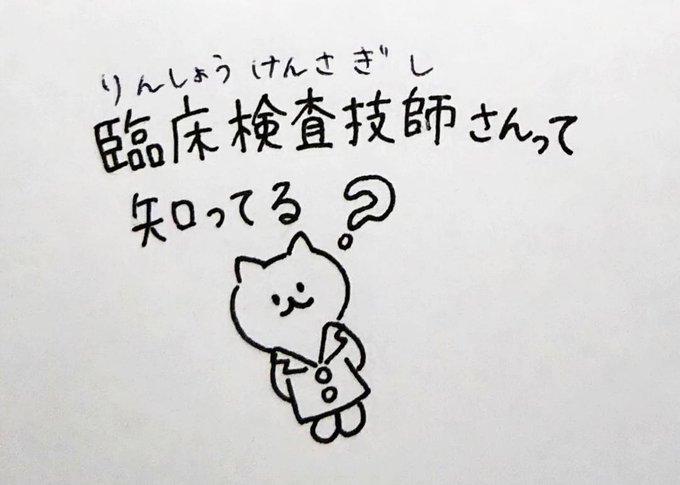 りんしょうけんさぎし
臨床検査技師さんって
知ってる?